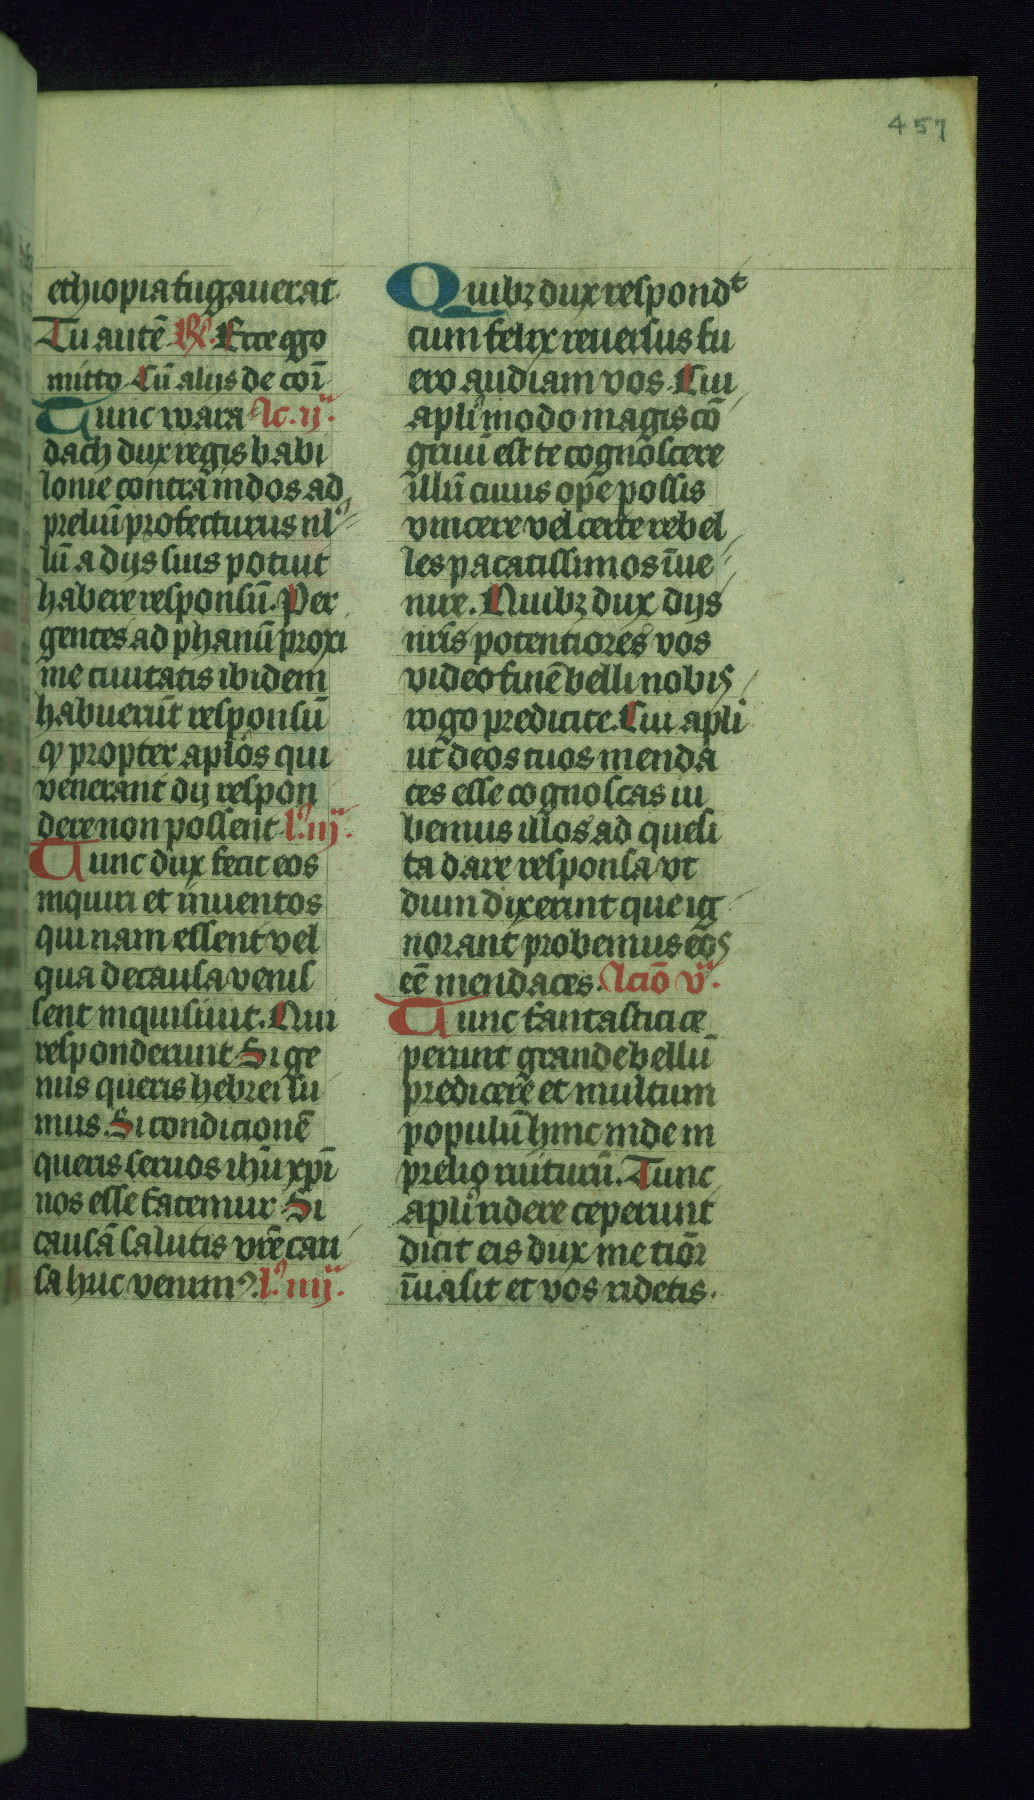 457
ethiopia fugauerat
Tu autē R͛. Ecce ego
mitto Cū alijs de coī
Tunc wara lc. ij.
dach dux regis babi
lonie contra indos ad
preliū profecturus nl
lū a dijs suis potuit
habere responsū. Per
gentes ad phanū proxi
me ciuitatis ibidem
habuerūt responsū
ꝙ propter aplōs qui
venerant dij respon
dere non possent l. iij.
Tunc dux fecit eos
inquiri et inuentos
qui nam essent vel
qua de causa venis
sent inquisiuit. Qui
responderunt Si ge
nus queris hebrei su
mus. Si condicionē
queris seruos ihū xp̄i
nos esse fatemur Si
causā salutis vrē cau
sa huc venimꝰ. l. iiij.
Quibꝫ dux respondt
cum felix reuersus fu
ero audiam vos. Cui
apli modo magis cō
gruū est te cognoscere
illū cuius ope possis
vincere vel certe rebel
les pacatissimos īue
nire. Quibꝫ dux dijs
nrīs potentiores vos
video finē belli nobis
rogo predicite. Cui apli
ut deos tuos menda
ces esse cognoscas iu
bemus illos ad quesi
ta dare responsa vt
dum dixerint que ig
norant probemus eos
eē mendaces. lctiō v.
Tunc fantastici ce
perunt grande bellū
predicere et multum
populū hinc inde in
prelio ruiturū. Tunc
apli ridere ceperunt
dicit eis dux me tiōr
īuasit et vos ridetis.